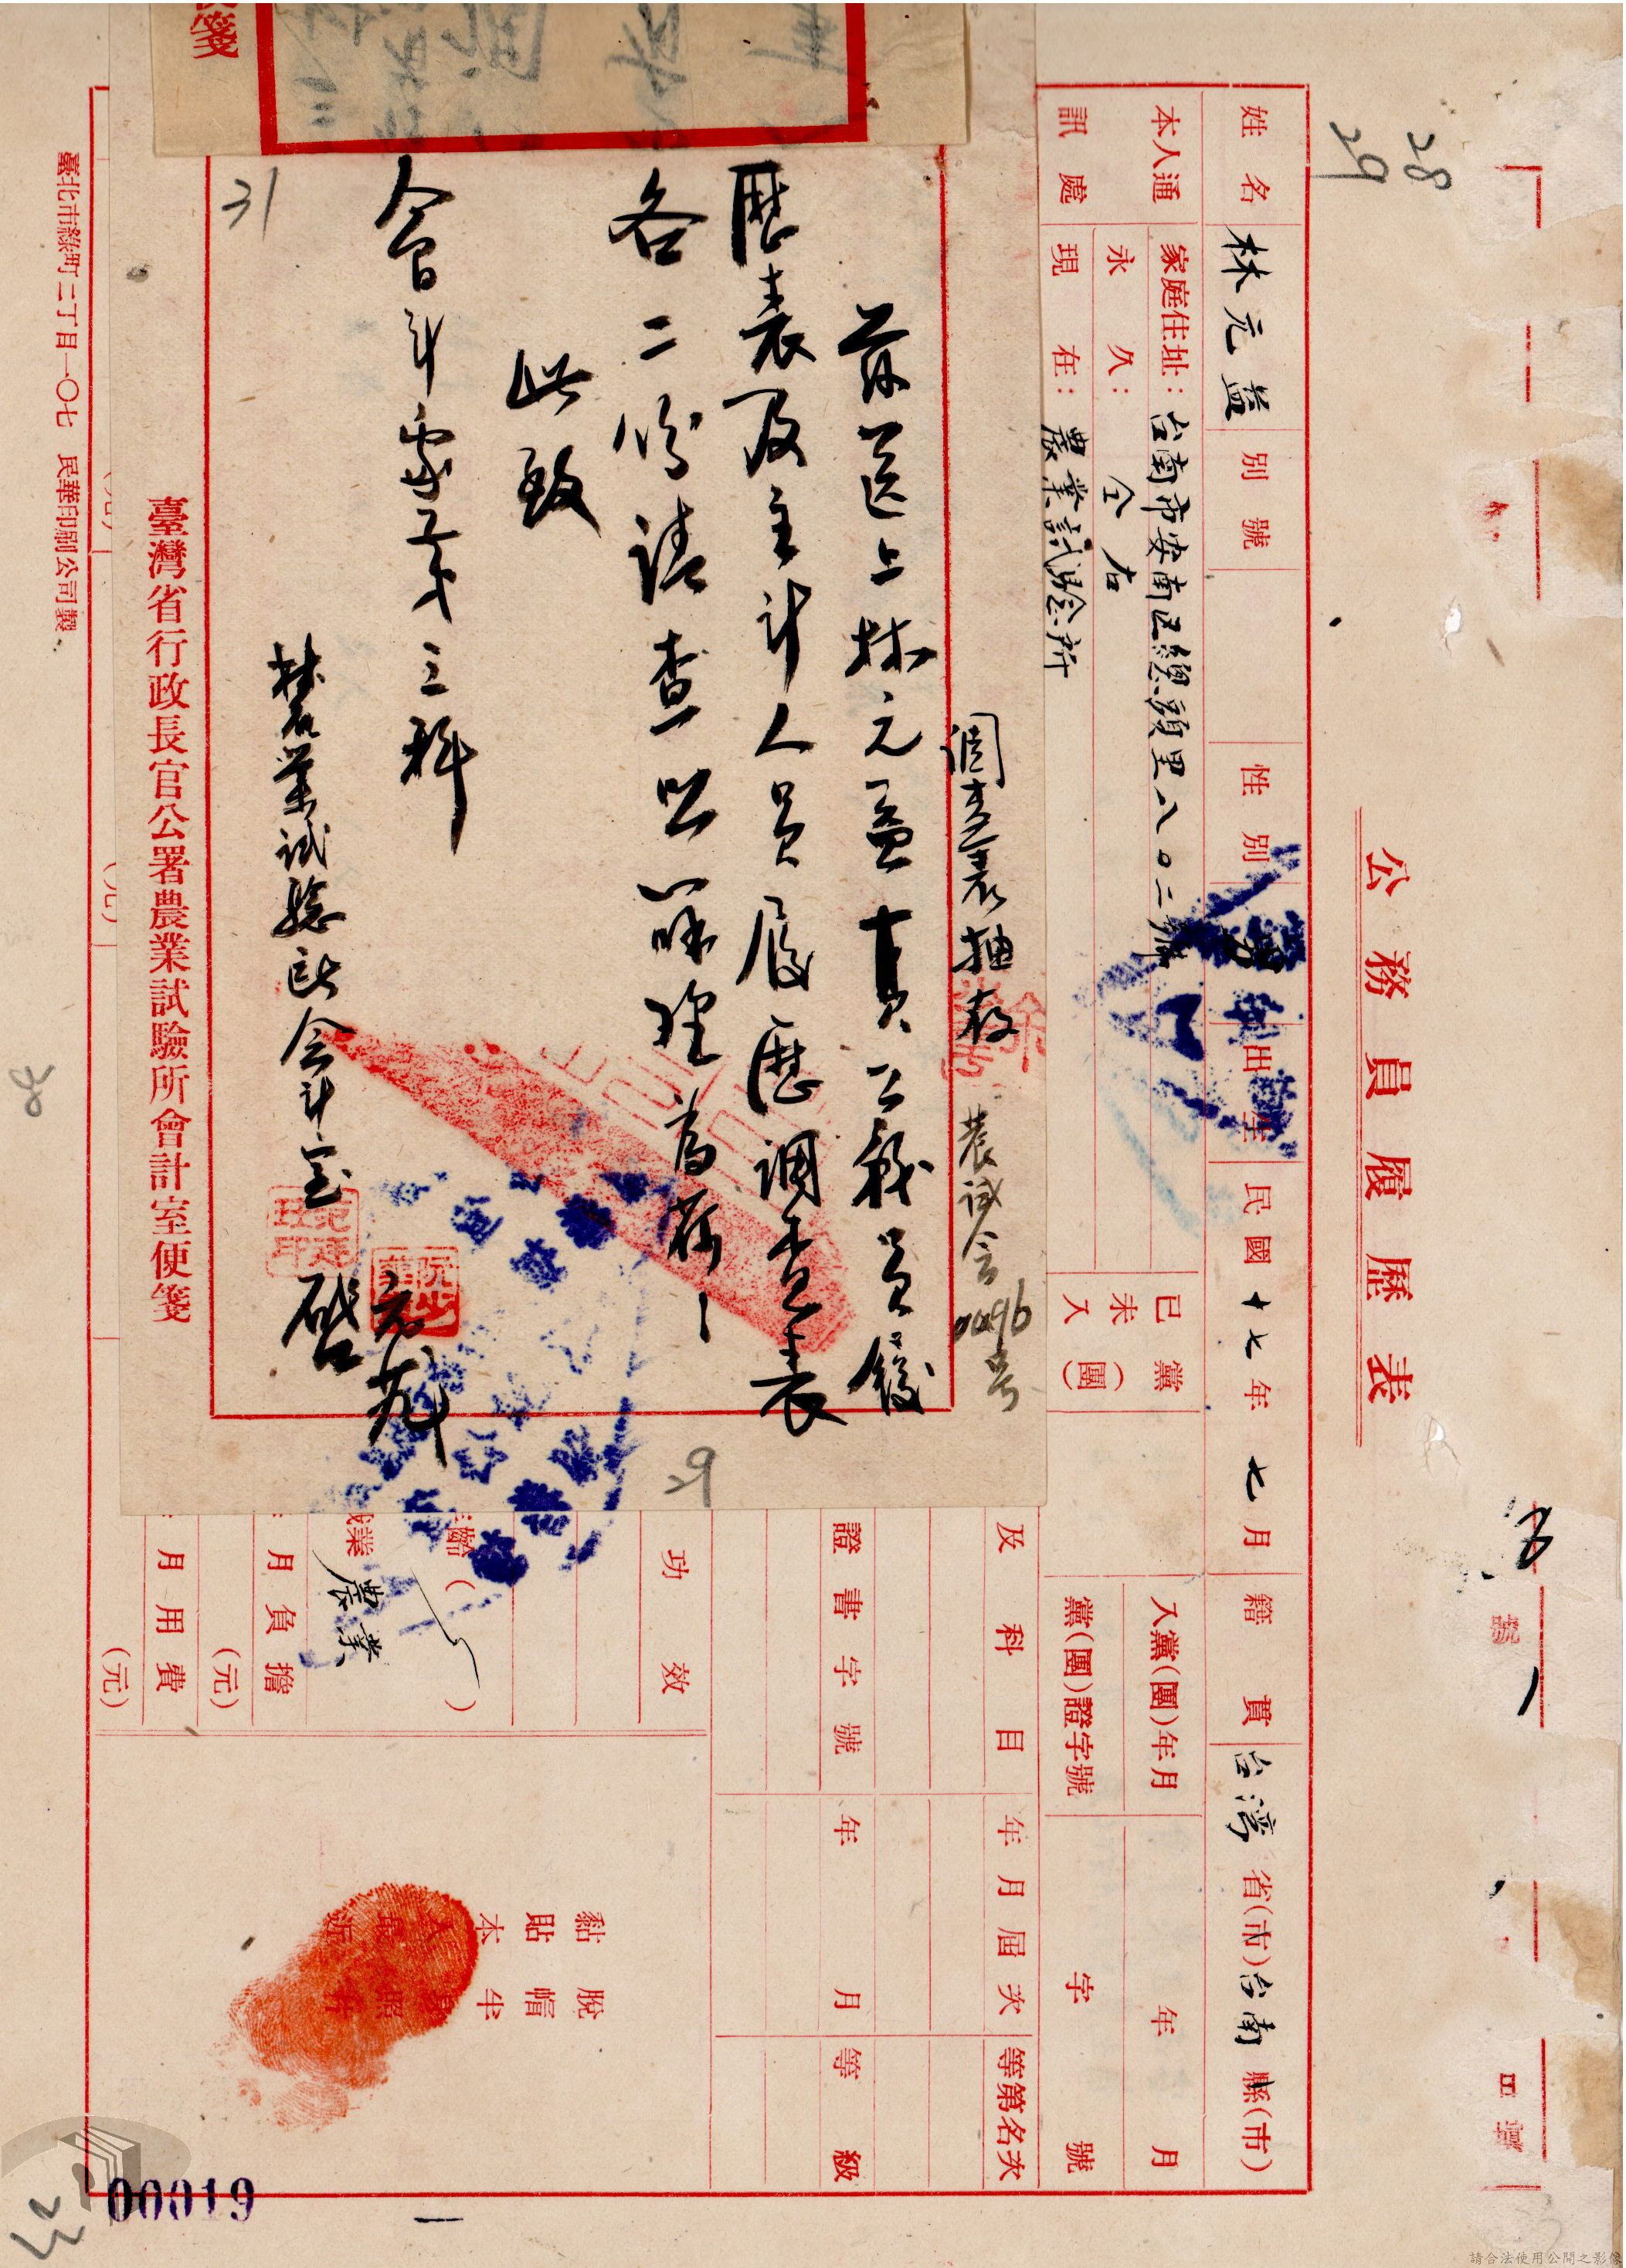 公務員履歷表
姓名 林元益 別號 性別 男 出生 民國十七年七月 籍貫 台灣省(市)台南縣(市)
本人通訊處
家庭住址：台南市安南区總頭里八〇二號
永久：仝右
現在：農業試驗所
已未入黨(團)
入黨(團)年月 年 月
黨(團)證字號 字 號
及科目 年月屆次 等第名次
證書字號 年 月 等級
功效
齡( )
業 農業
月負擔 (元)
月用費 (元)
黏貼本人最近
脫帽半身照片
臺北市綠町二丁目一〇七 民華印刷公司製
調查表抽存
農試会0096号
茲送上林元益員公務員履
歷表及主計人員履歷調查表
各二份請查照辦理為荷
此致
會計處第三科
農業試驗所会計室 啟
元月
臺灣省行政長官公署農業試驗所會計室便箋
箋
28
29
31
29
號
00019
請合法使用公開之影像